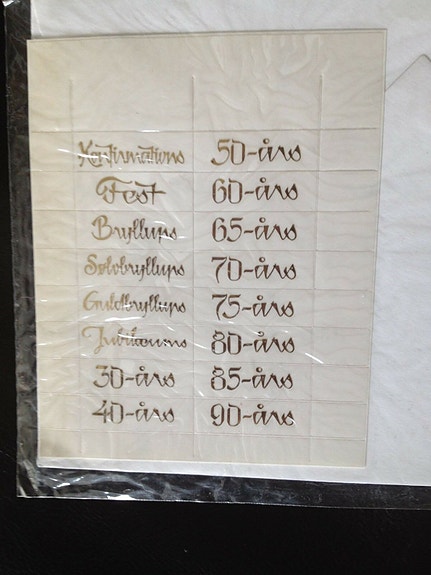 Konfirmations 50-års
Fest 60-års
Bryllups 65-års
Sølvbryllups 70-års
Guldbryllups 75-års
Jubilæums 80-års
30-års 85-års
40-års 90-års